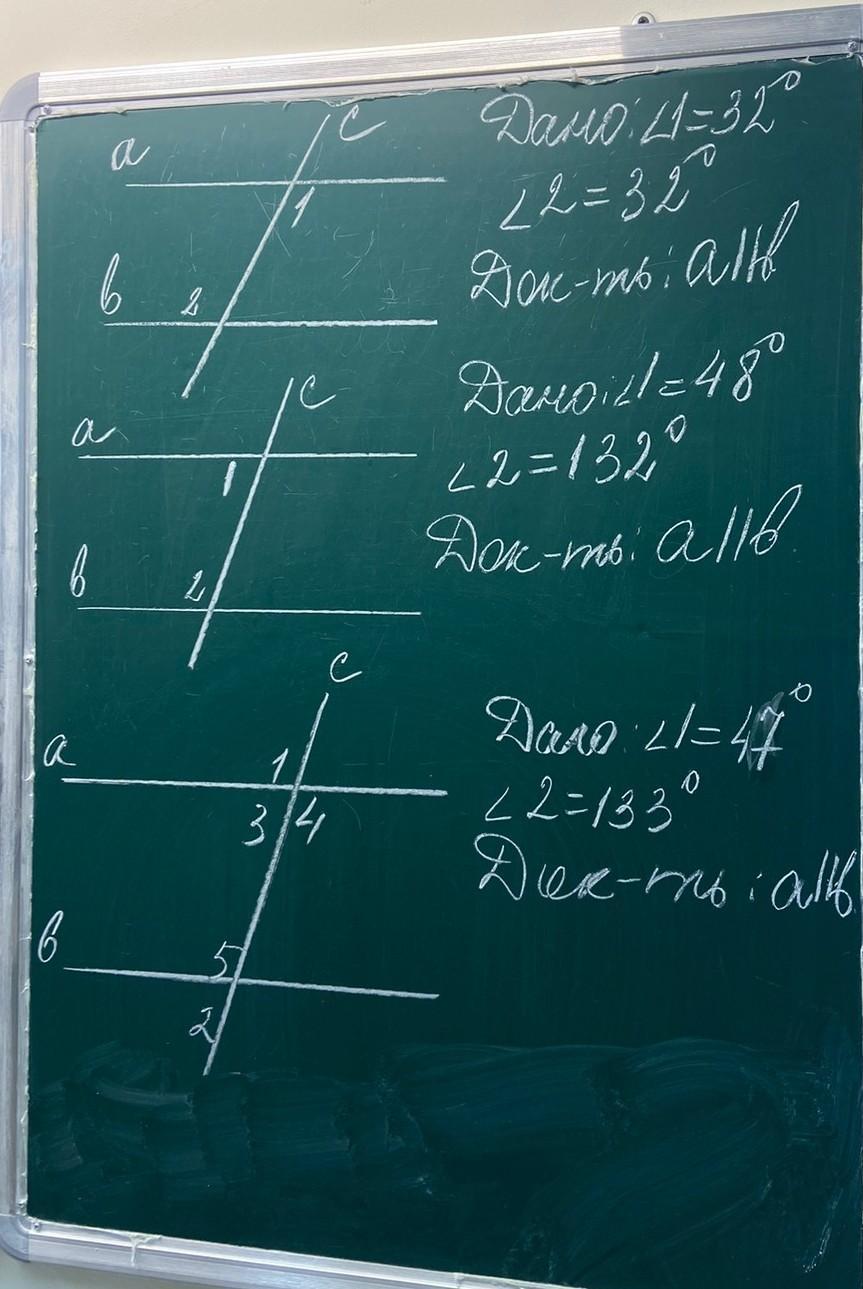 c
a
1
b
2
Дано: ∠1=32°
∠2=32°
Док-ть: a||b
c
a
1
b
2
Дано: ∠1=48°
∠2=132°
Док-ть: a||b
c
a
1
3 4
b
5
2
Дано: ∠1=47°
∠2=133°
Док-ть: a||b